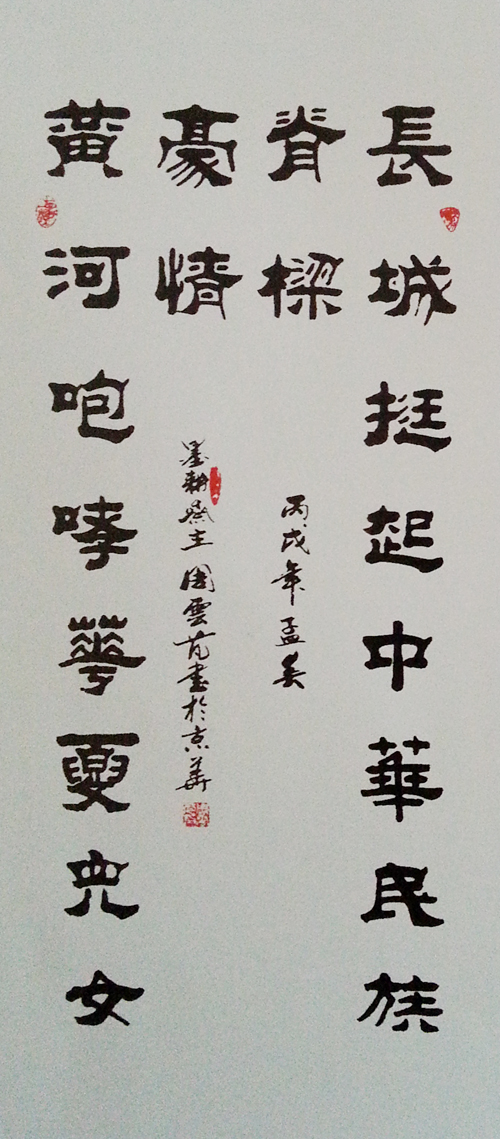 長城挺起中華民族
脊樑
丙戌年孟
黃河咆哮華夏兒女
豪情
墨耕主周雲書於京華